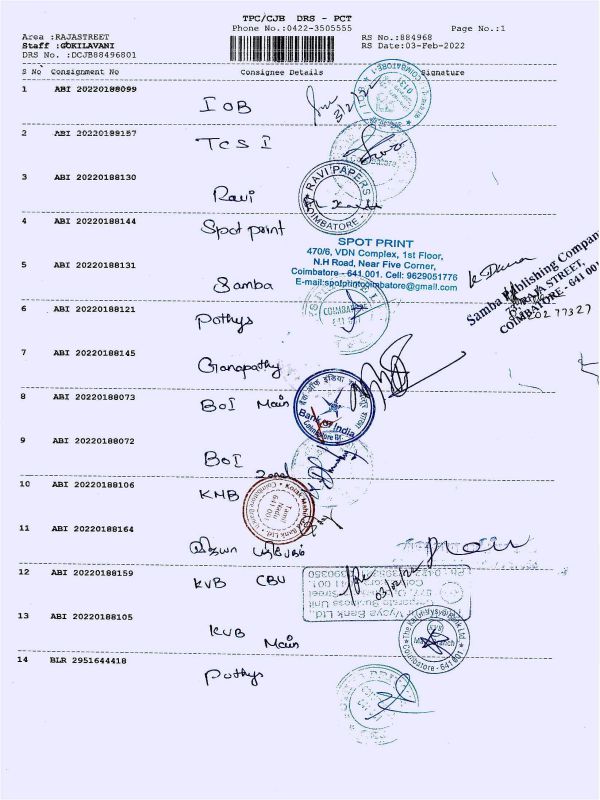 TPC/CJB DRS - PCT
Phone No.:0422-3505555
Page No.:1
Area :RAJASTREET
RS No.:884968
Staff :GOKILAVANI
RS Date:03-Feb-2022
DRS No. :DCJB88496801
S No Consignment No Consignee Details Signature
1 ABI 20220188099
IOB
3/2/22
2 ABI 20220188157
TCS I
3 ABI 20220188130
Ravi
RAVI PAPERS
COIMBATORE
4 ABI 20220188144
Spot print
SPOT PRINT
470/6, VDN Complex, 1st Floor,
N.H Road, Near Five Corner,
Coimbatore - 641 001. Cell: 9629051776
E-mail:spotprintcoimbatore@gmail.com
5 ABI 20220188131
Samba
Samba Publishing Company
RAJA STREET,
COIMBATORE - 641 001
6 ABI 20220188121
Pothys
COIMBATORE
7 ABI 20220188145
Ganapathy
8 ABI 20220188073
BOI Main
बैंक ऑफ इंडिया
Bank of India
9 ABI 20220188072
BOI Zonal
10 ABI 20220188106
KMB
Tamil
Nadu
641 001
11 ABI 20220188164
விஜயா பதிப்பகம்
12 ABI 20220188159
KVB CBU
03/02/22
Vysya Bank Ltd.,
Business Unit
13 ABI 20220188105
KVB Main
The Karur Vysya Bank Ltd.
Coimbatore - 641 001
14 BLR 2951644418
Pothys